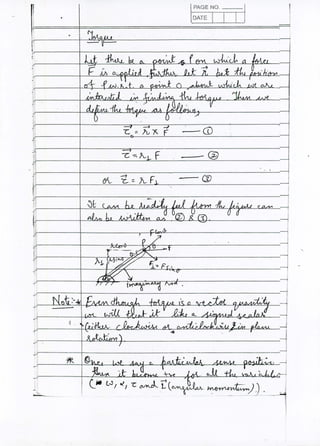 PAGE NO.
DATE
Torque
Let there be a point P on which a force
F is applied. Further let r be the position
of P w.r.t. a point O, about which we are
interested in finding the torque. Then we
define the torque as follows,
τ₀ = r × F — ①
τ = r⊥ F — ②
or τ = r F⊥ — ③
It can be readily feel from the figure can
also be written as ② & ③.
F cosθ
r cosθ
P
F
r⊥
r sinθ
F⊥ = F sinθ
O
Imaginary rod.
Note:* Even though torque is a vector quantity
we will treat it like a signed scalar
(either clockwise or anticlockwise in plane
rotation)
* Once, we say a particular sense positive.
Then it become +ve for all the variables
(ω, α, τ and L (angular momentum)).